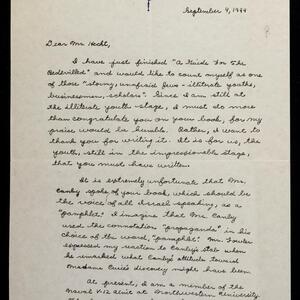 September 9, 1944
Dear Mr. Hecht,
I have just finished "A Guide for the
Bedevilled" and would like to count myself as one
of those "stormy, unafraid Jews - illiterate youths,
businessmen, scholars". Since I am still at
the illiterate youth-stage, I must do more
than congratulate you on your book, for my
praise would be humble. Rather, I want to
thank you for writing it. It is for us, the
youth, still in the impressionable stage,
that you must have written.
It is extremely unfortunate that Mr.
Canby spoke of your book, which should be
the voice of all Israel speaking, as a
"pamphlet". I imagine that Mr. Canby
used the connotation "propaganda" in his
choice of the word, "pamphlet". Mr. Fowler
expressed my reaction to Canby's stab when
he remarked what Canby's attitude toward
Madame Curie's discovery might have been.
At present, I am a member of the
Naval V-12 unit at Northwestern University.